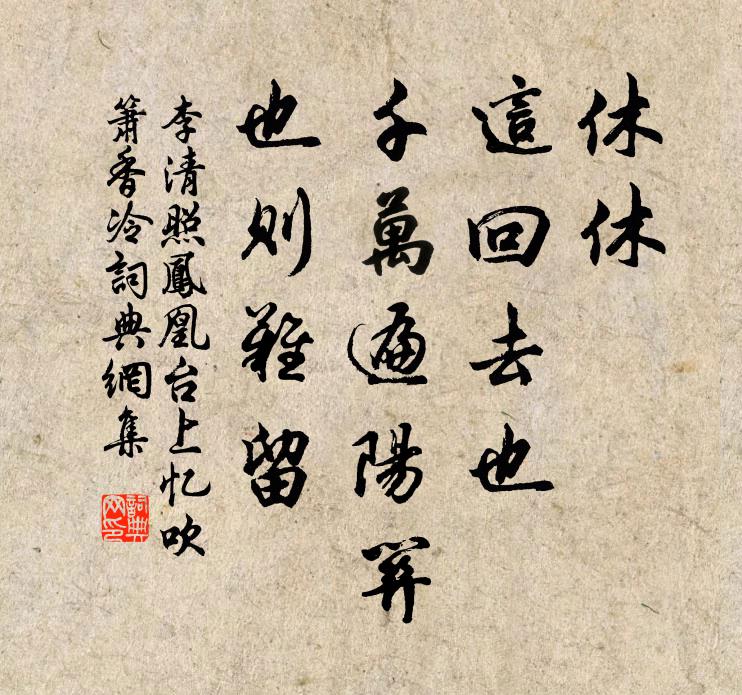 休休
這回去也
千萬遍陽關
也則難留
李清照鳳凰台上忆吹
簫香冷詞典網集
詞典
网印